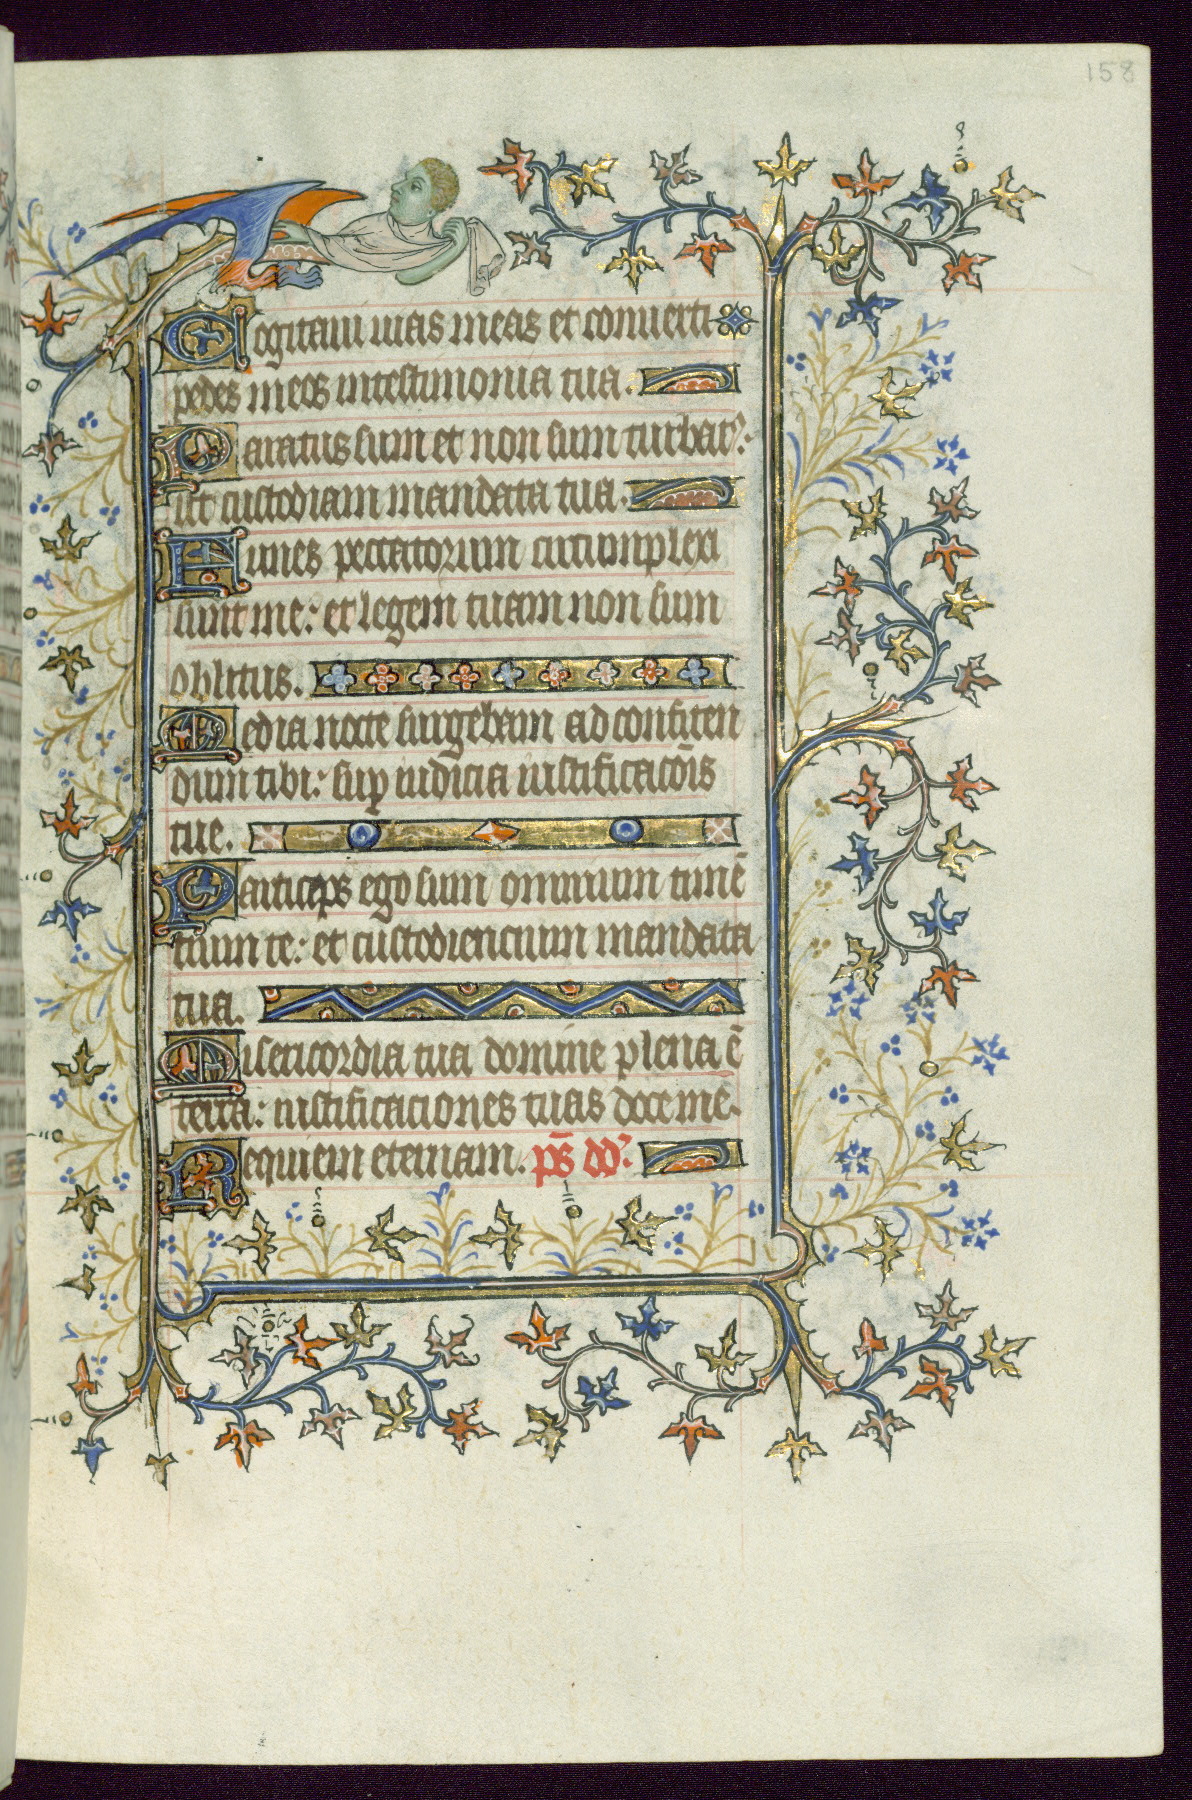 158
Cogitaui uias meas et conuerti
pedes meos in testimonia tua.
Paratus sum et non sum turbatꝰ:
ut custodiam mandata tua.
Funes peccatorum circumplexi
sunt me: et legem tuam non sum
oblitus.
Media nocte surgebam ad confiten
dum tibi: sup̱ iudicia iustificacōis
tue.
Particeps ego sum omnium timē
tium te: et custodiencium mandata
tua.
Misericordia tua domine plena ē
terra: iustificaciones tuas doce me.
Requiem eternam. p̄s